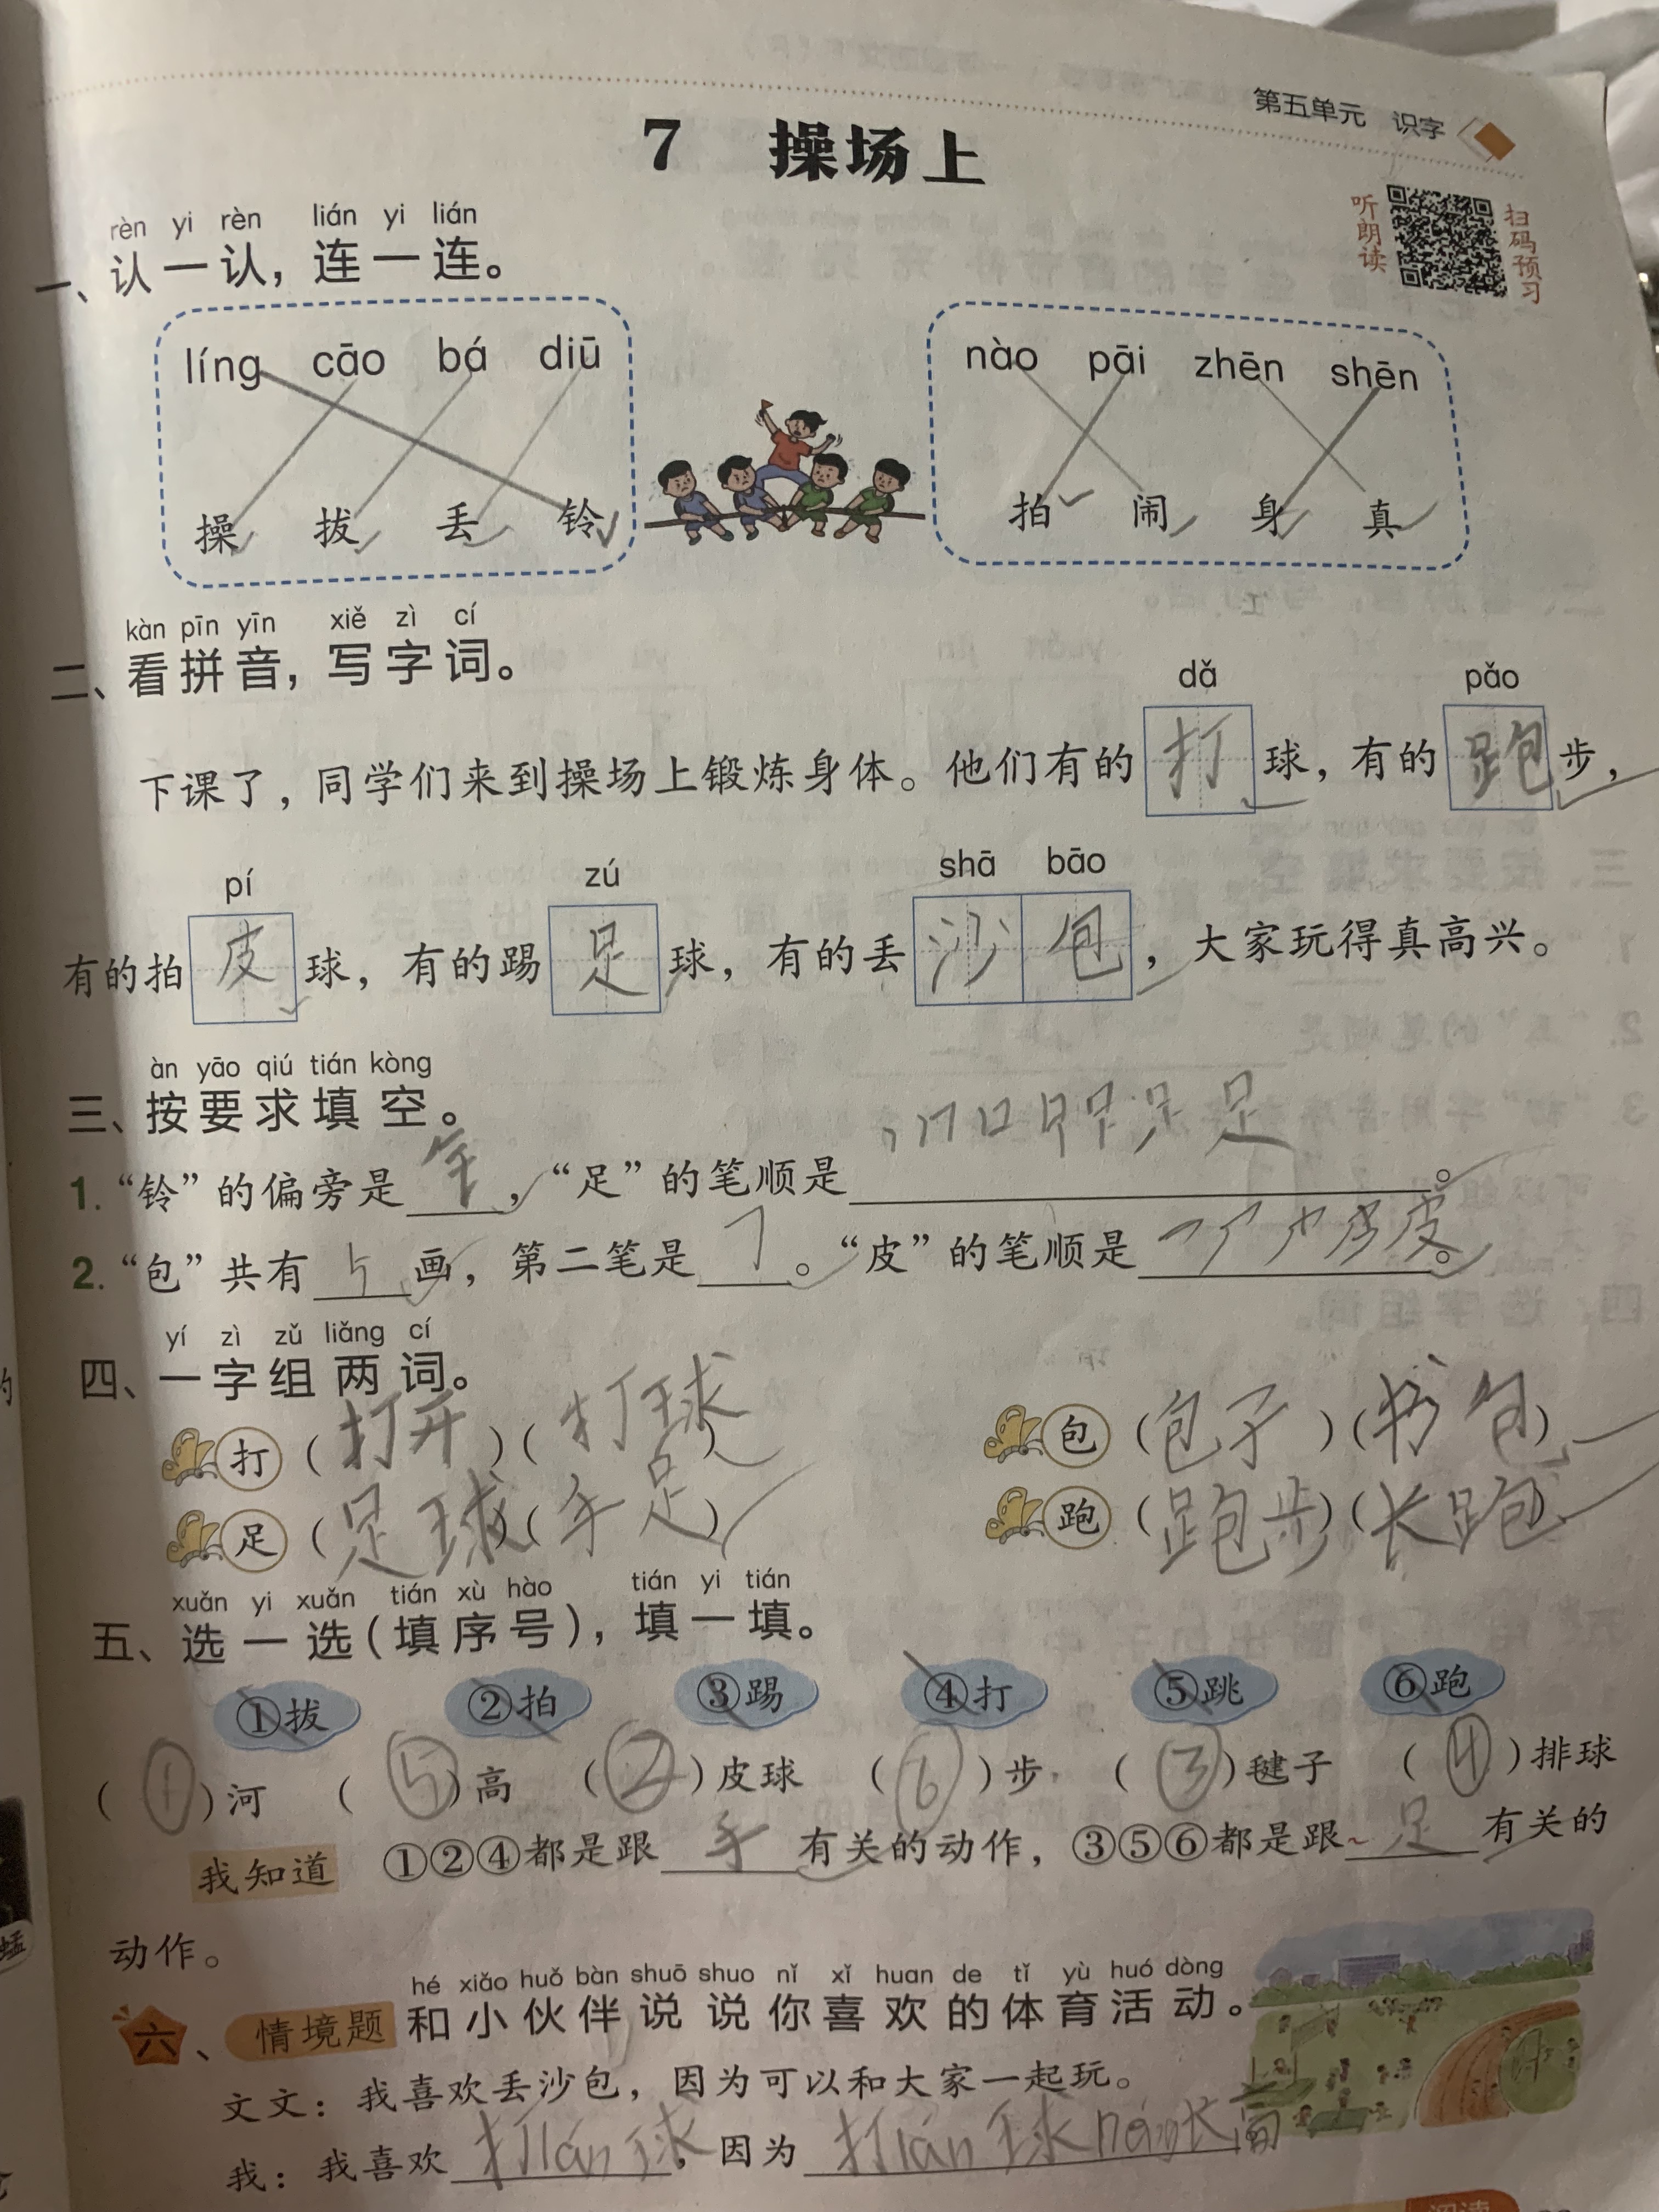 第五单元 识字
7 操场上
听朗读
扫码预习
rèn yi rèn lián yi lián
一、认一认，连一连。
líng cāo bá diū
nào pāi zhēn shēn
操 拔 丢 铃
拍 闹 身 真
kàn pīn yīn xiě zì cí
二、看拼音，写字词。
dǎ pǎo
下课了，同学们来到操场上锻炼身体。他们有的打球，有的跑步，
pí zú shā bāo
有的拍皮球，有的踢足球，有的丢沙包，大家玩得真高兴。
àn yāo qiú tián kòng
三、按要求填空。
1. “铃”的偏旁是钅，“足”的笔顺是 足。
2. “包”共有5画，第二笔是㇆。“皮”的笔顺是 皮。
yí zì zǔ liǎng cí
四、一字组两词。
打（打开）（打球） 包（包子）（书包）
足（足球）（手足） 跑（跑步）（长跑）
xuǎn yi xuǎn tián xù hào tián yi tián
五、选一选（填序号），填一填。
①拔 ②拍 ③踢 ④打 ⑤跳 ⑥跑
（1）河 （5）高 （2）皮球 （6）步 （3）毽子 （4）排球
我知道 ①②④都是跟手有关的动作，③⑤⑥都是跟足有关的
动作。
hé xiǎo huǒ bàn shuō shuo nǐ xǐ huan de tǐ yù huó dòng
六、情境题 和小伙伴说说你喜欢的体育活动。
文文：我喜欢丢沙包，因为可以和大家一起玩。
我：我喜欢打lán球，因为打lán球néng长高
阅读